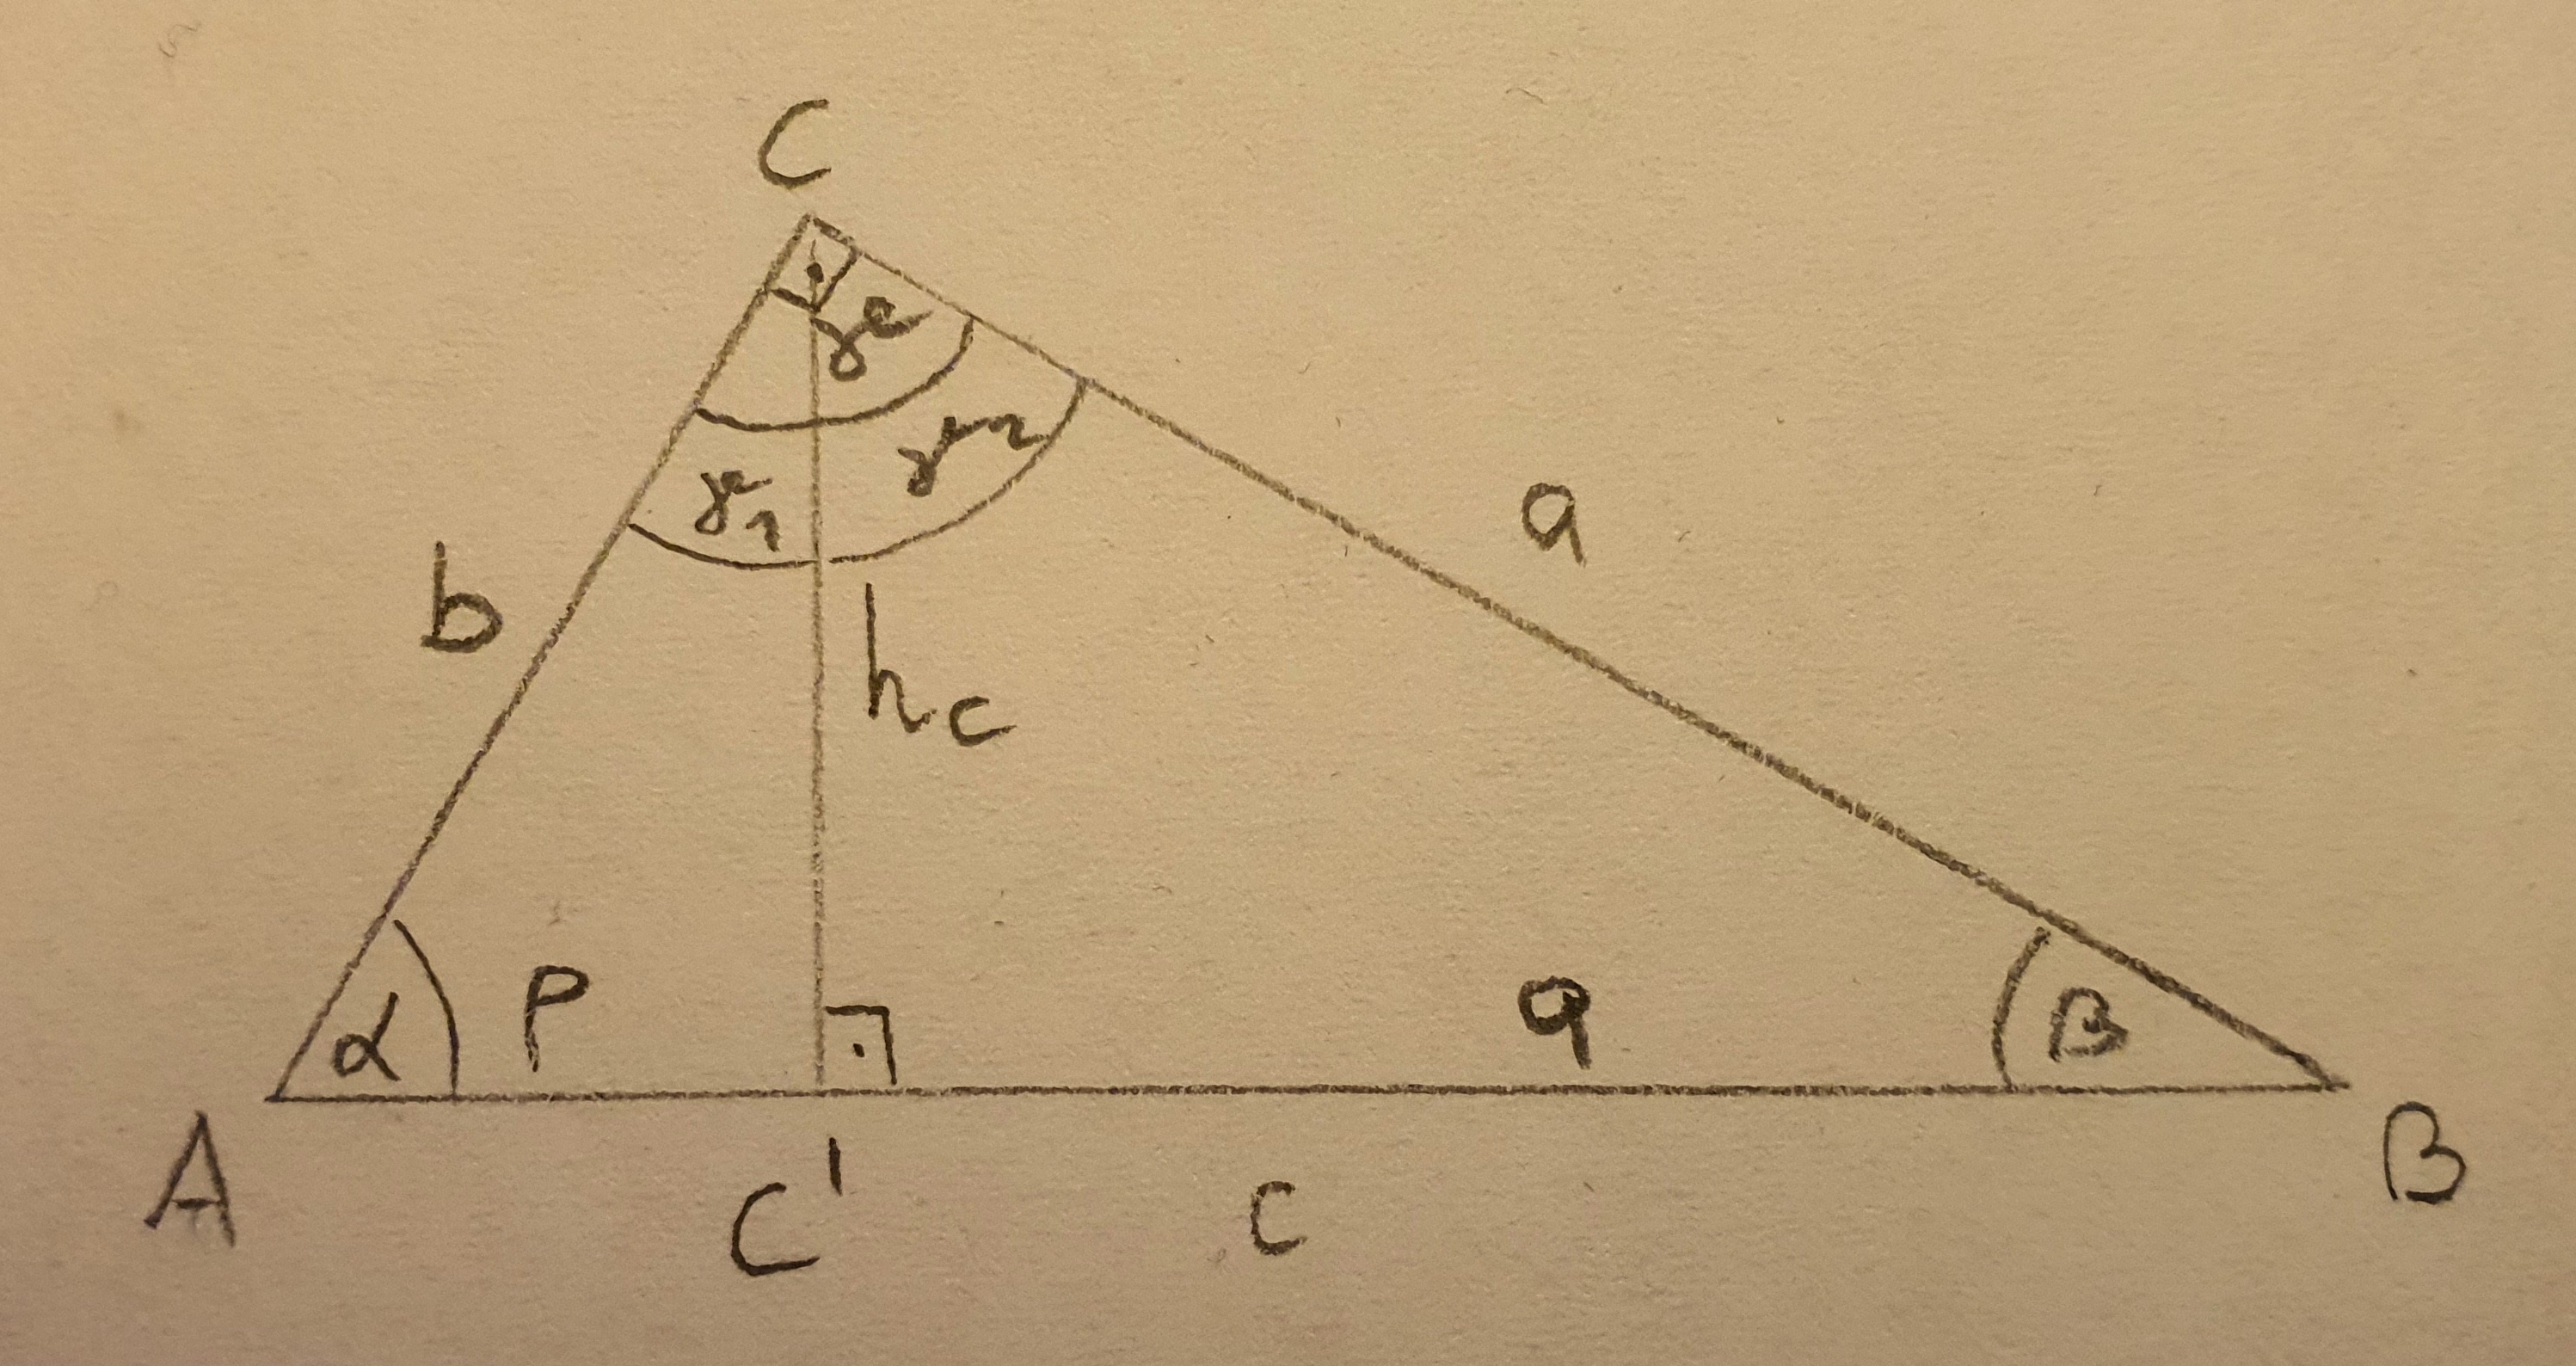 C
γ
γ2
γ1
a
b
hc
α
p
q
β
A
C'
c
B